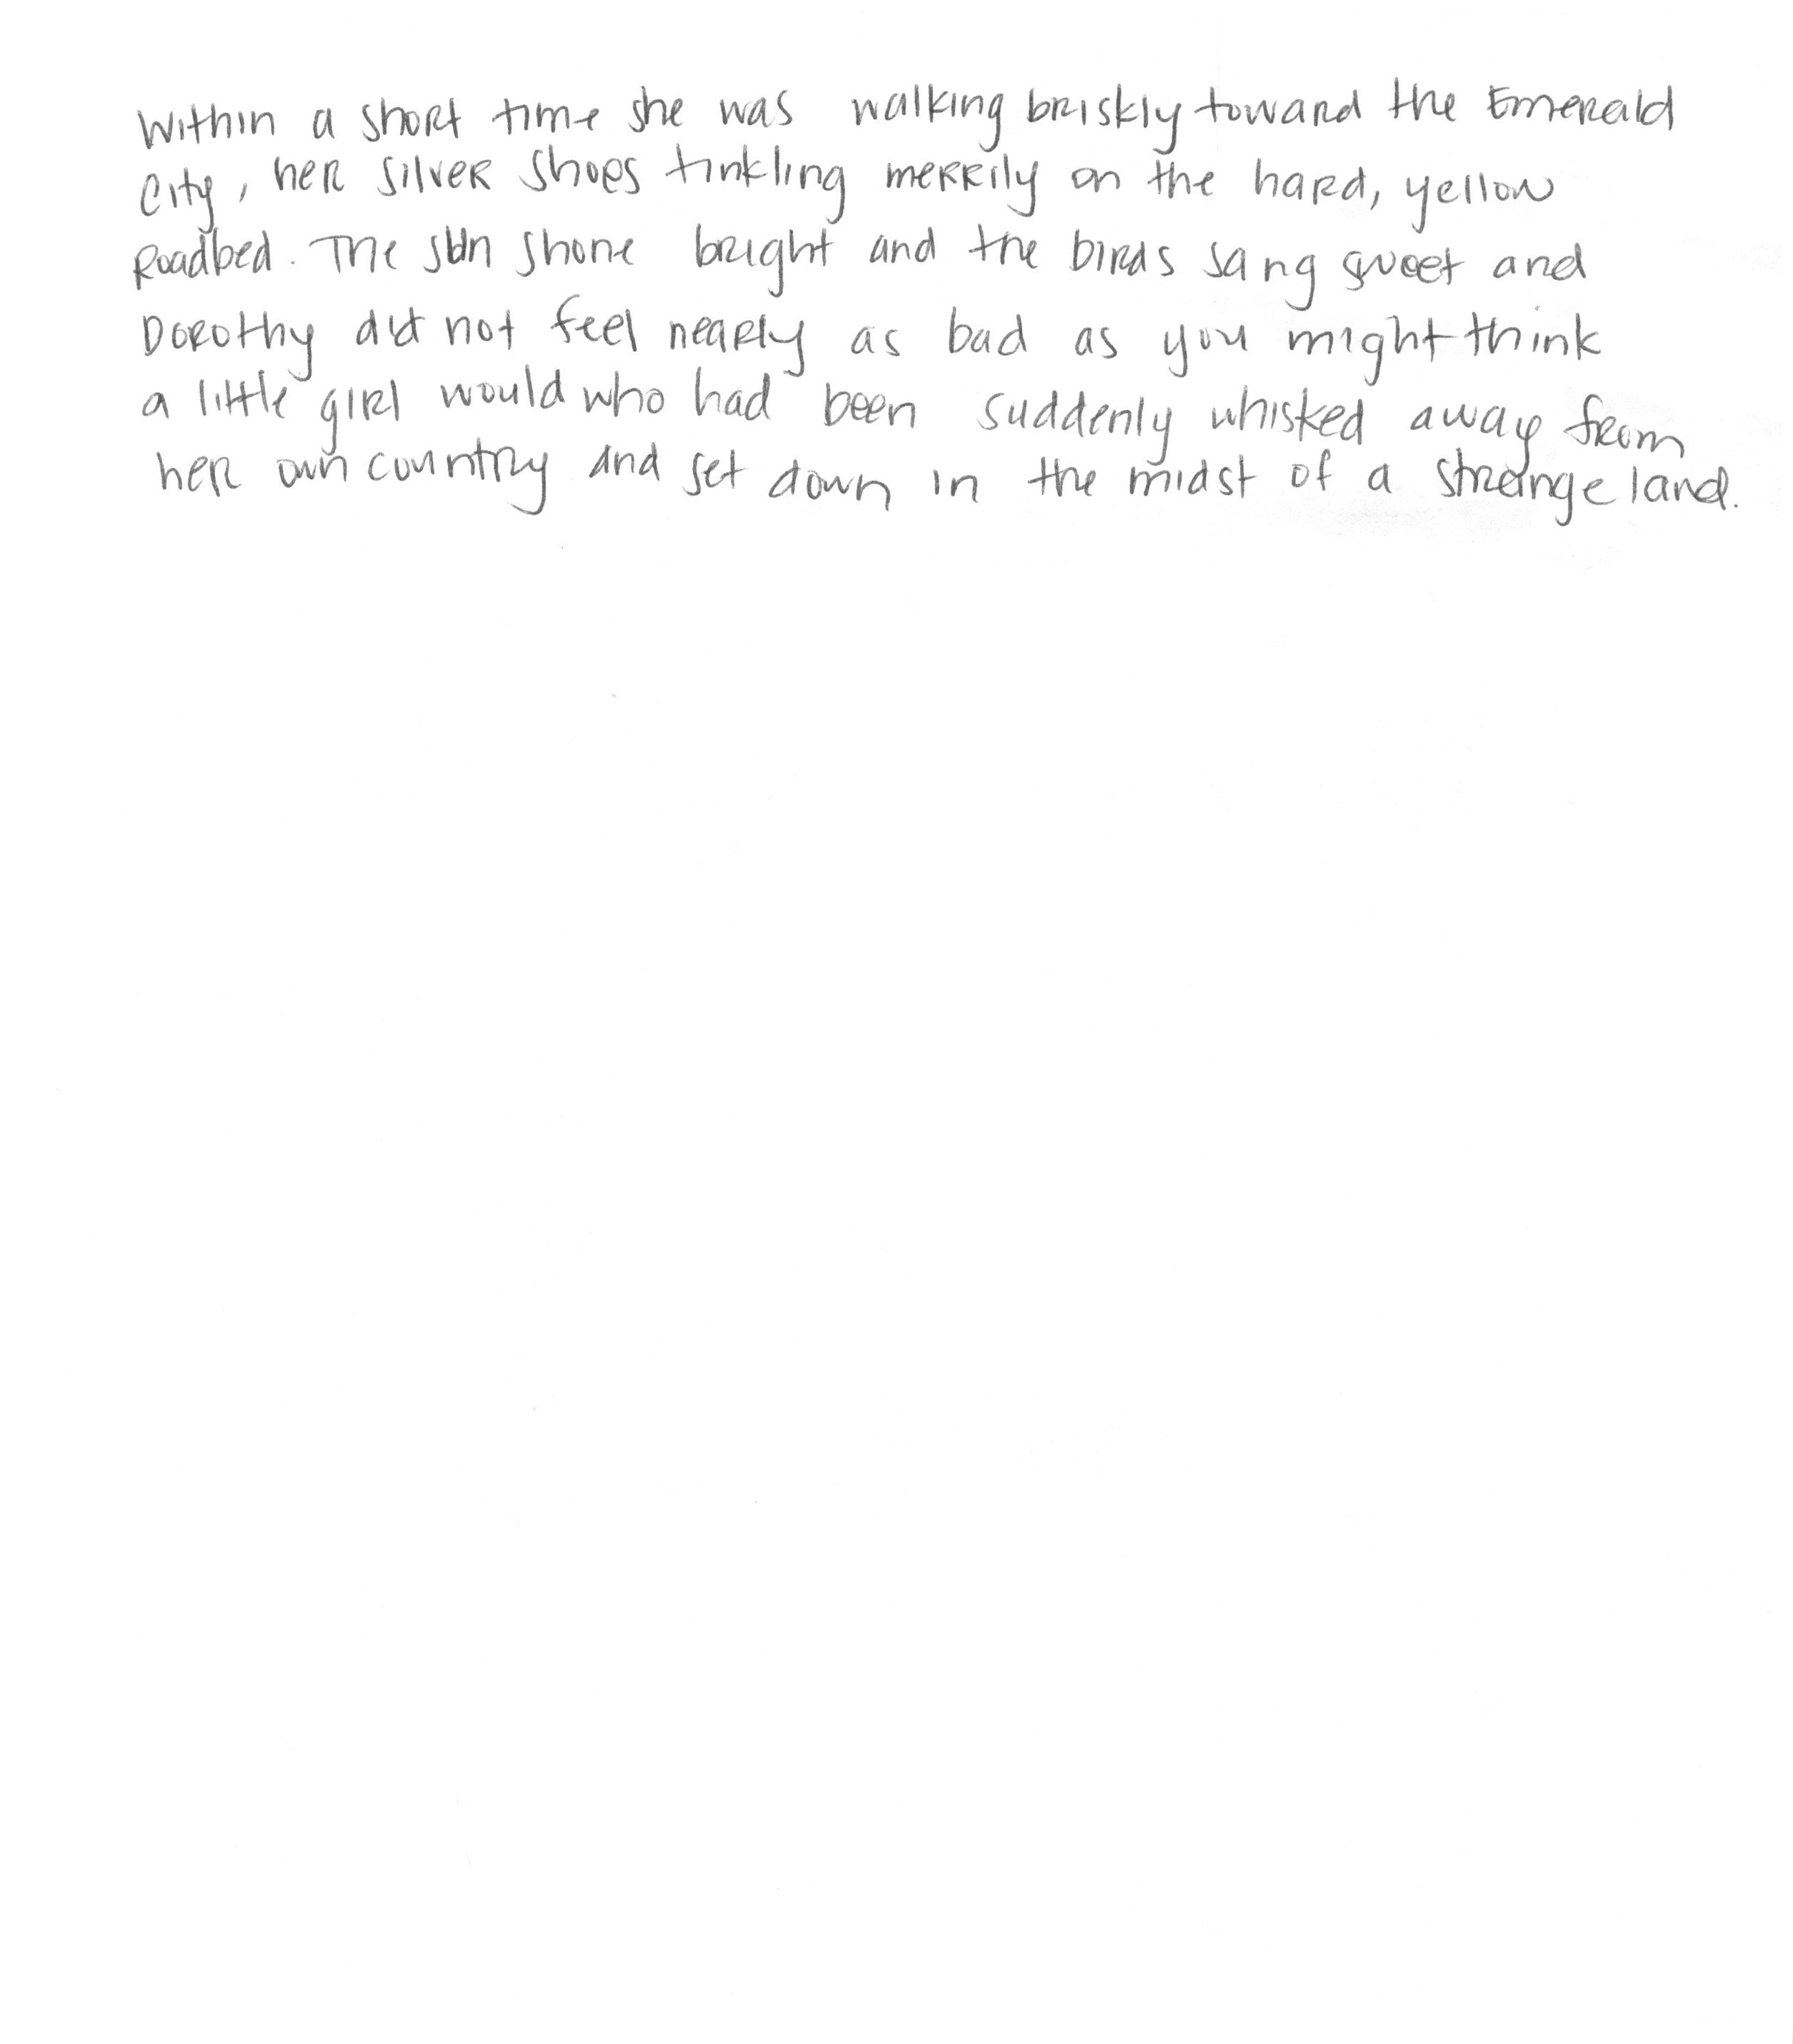 Within a short time she was walking briskly toward the Emerald
City, her silver shoes tinkling merrily on the hard, yellow
roadbed. The sun shone bright and the birds sang sweet and
Dorothy did not feel nearly as bad as you might think
a little girl would who had been suddenly whisked away from
her own country and set down in the midst of a strange land.